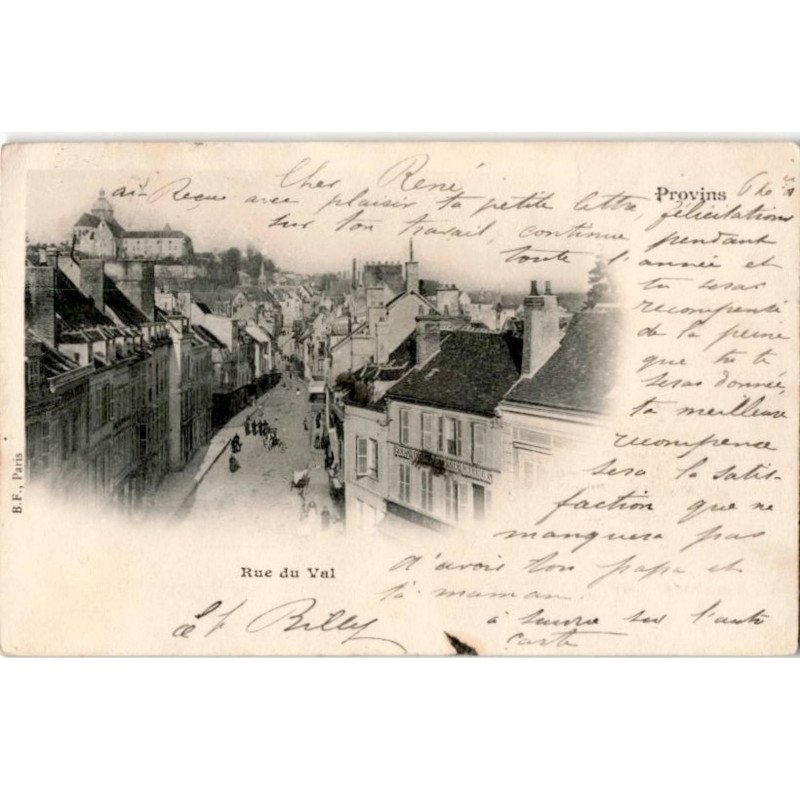 Provins
Cher René
ai Reçu avec plaisir ta petite lettre, félicitations
sur ton travail, continue pendant
toute l'année et
tu seras
recompensé
de la peine
que tu te
seras donnée,
ta meilleure
recompense
sera la satis-
faction que ne
manquera pas
d'avoir ton papa et
ta maman.
à suivre sur l'autre
carte
Rue du Val
B. F., Paris
Billy